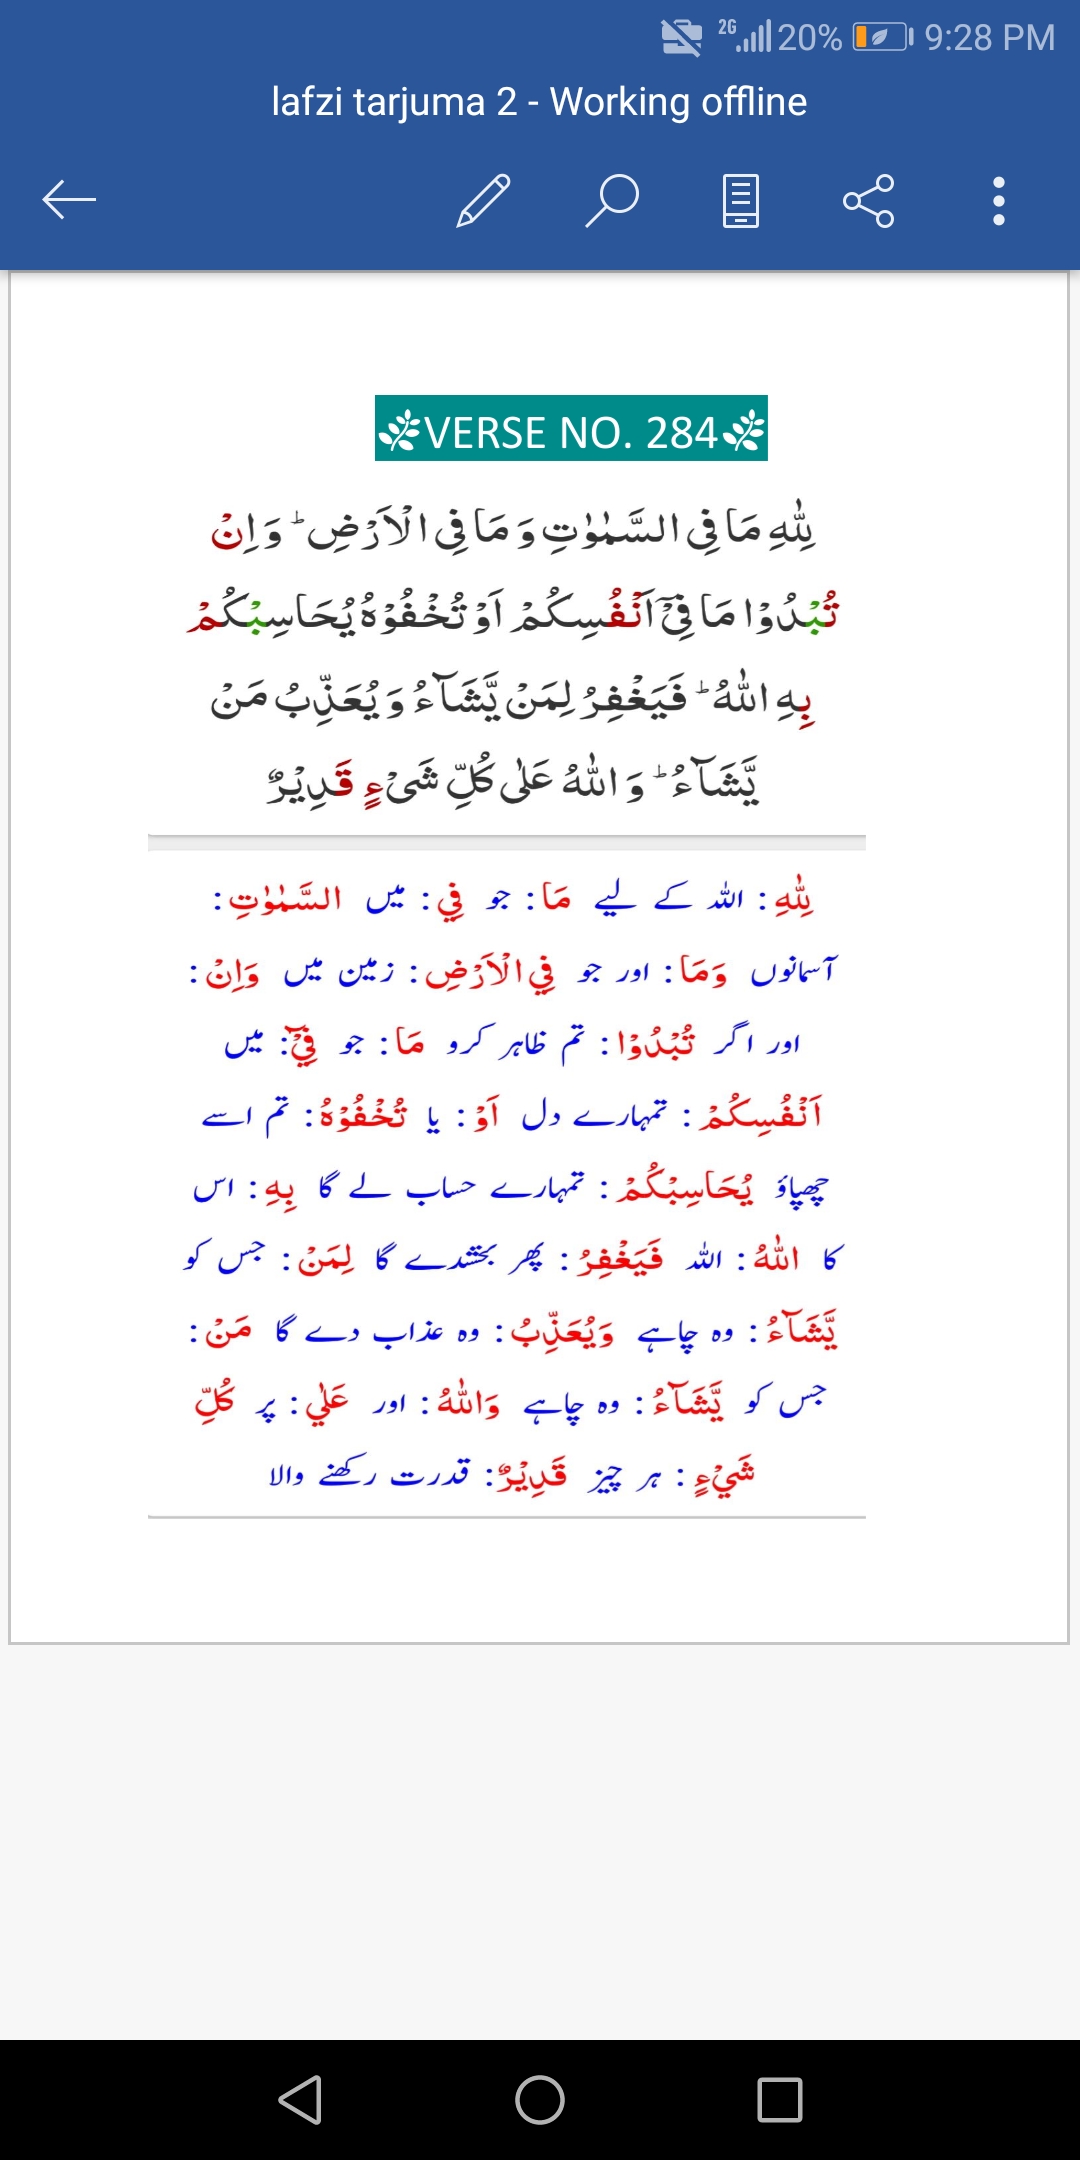 2G 20% 9:28 PM
lafzi tarjuma 2 - Working offline
VERSE NO. 284
لِلّٰهِ مَا فِی السَّمٰوٰتِ وَ مَا فِی الْاَرْضِ ؕ وَ اِنْ
تُبْدُوْا مَا فِیْۤ اَنْفُسِكُمْ اَوْ تُخْفُوْهُ یُحَاسِبْكُمْ
بِهِ اللّٰهُ ؕ فَیَغْفِرُ لِمَنْ یَّشَآءُ وَ یُعَذِّبُ مَنْ
یَّشَآءُ ؕ وَ اللّٰهُ عَلٰی كُلِّ شَیْءٍ قَدِیْرٌ
لِلّٰهِ : اللہ کے لیے مَا : جو فِي : میں السَّمٰوٰتِ :
آسمانوں وَمَا : اور جو فِي الْاَرْضِ : زمین میں وَاِنْ :
اور اگر تُبْدُوْا : تم ظاہر کرو مَا : جو فِيْٓ : میں
اَنْفُسِكُمْ : تمہارے دل اَوْ : یا تُخْفُوْهُ : تم اسے
چھپاؤ يُحَاسِبْكُمْ : تمہارے حساب لے گا بِهِ : اس
کا اللّٰهُ : اللہ فَيَغْفِرُ : پھر بخشدے گا لِمَنْ : جس کو
يَّشَآءُ : وہ چاہے وَيُعَذِّبُ : وہ عذاب دے گا مَنْ :
جس کو يَّشَآءُ : وہ چاہے وَاللّٰهُ : اور عَلٰي : پر كُلِّ
شَيْءٍ : ہر چیز قَدِيْرٌ : قدرت رکھنے والا